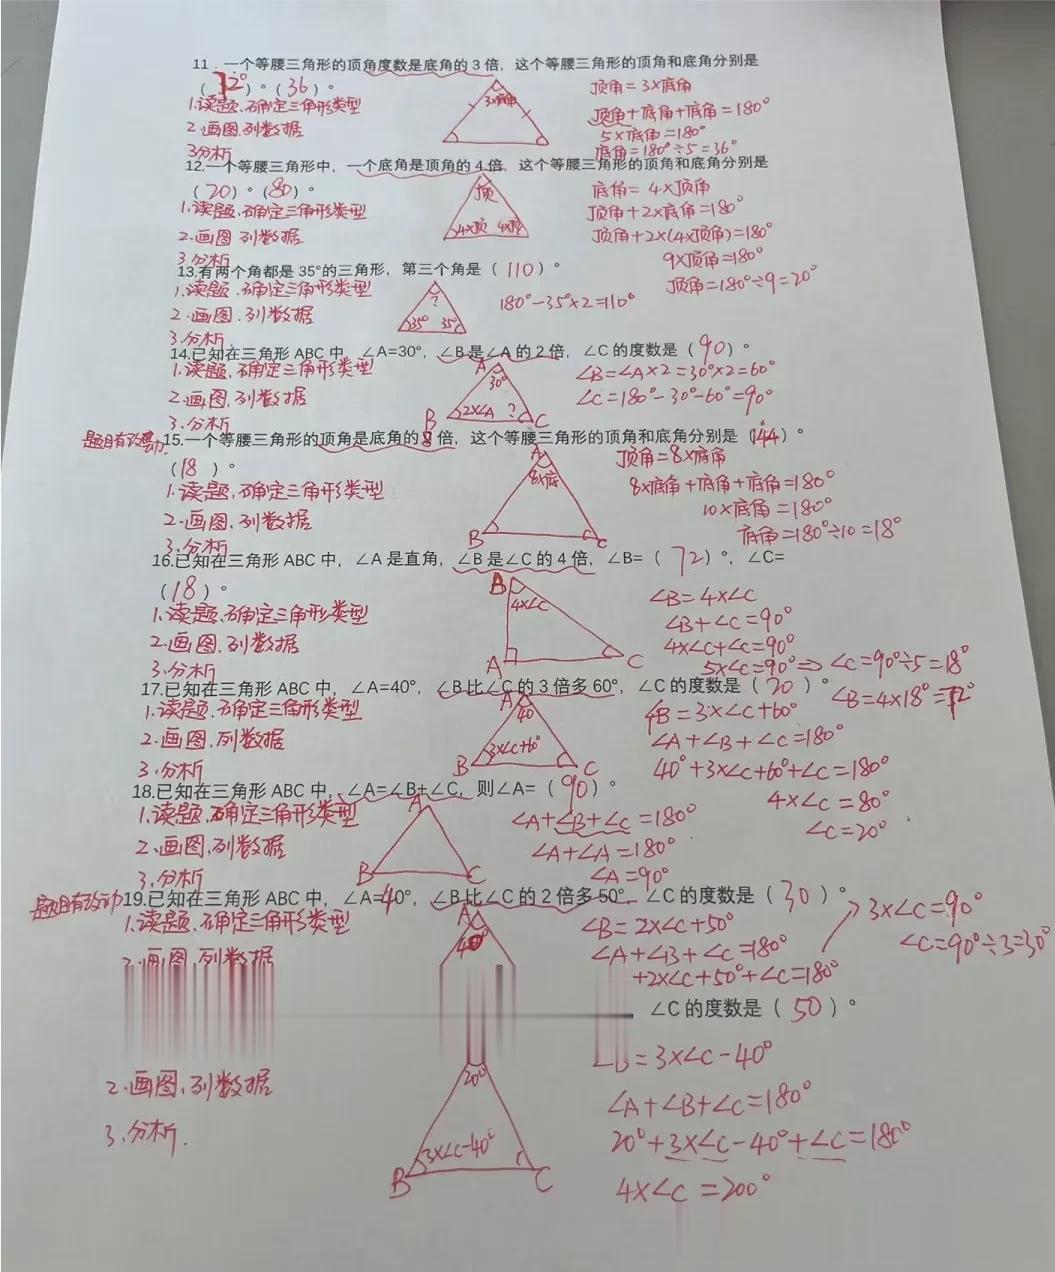 11.一个等腰三角形的顶角度数是底角的3倍，这个等腰三角形的顶角和底角分别是
（72°）°（36）°
1.读题、确定三角形类型
2.画图、列数据
3分析
3×底角
顶角=3×底角
顶角+底角+底角=180°
5×底角=180°
底角=180°÷5=36°
12.一个等腰三角形中，一个底角是顶角的4倍，这个等腰三角形的顶角和底角分别是
（20）°（80）°
1.读题、确定三角形类型
2.画图 列数据
3 分析
顶
4×顶 4×顶
底角=4×顶角
顶角+2×底角=180°
顶角+2×(4×顶角)=180°
9×顶角=180°
顶角=180°÷9=20°
13.有两个角都是35°的三角形，第三个角是（110）°
1.读题、确定三角形类型
2.画图、列数据
3.分析
?
35° 35°
180°-35°×2=110°
14.已知在三角形ABC中，∠A=30°，∠B是∠A的2倍，∠C的度数是（90）°
1.读题、确定三角形类型
2.画图、列数据
3.分析
A
30°
B 2×∠A ? C
∠B=∠A×2=30°×2=60°
∠C=180°-30°-60°=90°
题目有改动
15.一个等腰三角形的顶角是底角的8倍，这个等腰三角形的顶角和底角分别是（144）°
（18）°
1.读题、确定三角形类型
2.画图、列数据
3.分析
A
8×底
B C
顶角=8×底角
8×底角+底角+底角=180°
10×底角=180°
底角=180°÷10=18°
16.已知在三角形ABC中，∠A是直角，∠B是∠C的4倍，∠B=（72）°，∠C=
（18）°
1.读题、确定三角形类型
2.画图、列数据
3.分析
B
4×∠C
A C
∠B=4×∠C
∠B+∠C=90°
4×∠C+∠C=90°
5×∠C=90°⇒∠C=90°÷5=18°
∠B=4×18°=72°
17.已知在三角形ABC中，∠A=40°，∠B比∠C的3倍多60°，∠C的度数是（20）°
1.读题、确定三角形类型
2.画图、列数据
3.分析
A
40
B 3×∠C+60° C
∠B=3×∠C+60°
∠A+∠B+∠C=180°
40°+3×∠C+60°+∠C=180°
4×∠C=80°
∠C=20°
18.已知在三角形ABC中，∠A=∠B+∠C，则∠A=（90）°
1.读题、确定三角形类型
2.画图、列数据
3.分析
A
B C
∠A+∠B+∠C=180°
∠A+∠A=180°
∠A=90°
题目有改动
19.已知在三角形ABC中，∠A=40°，∠B比∠C的2倍多50°，∠C的度数是（30）°
1.读题、确定三角形类型
2.画图、列数据
A
∠B=2×∠C+50°
∠A+∠B+∠C=180°
+2×∠C+50°+∠C=180°
3×∠C=90°
∠C=90°÷3=30°
∠C的度数是（50）°
2.画图、列数据
3.分析.
20°
3×∠C-40°
B C
∠B=3×∠C-40°
∠A+∠B+∠C=180°
20°+3×∠C-40°+∠C=180°
4×∠C=200°